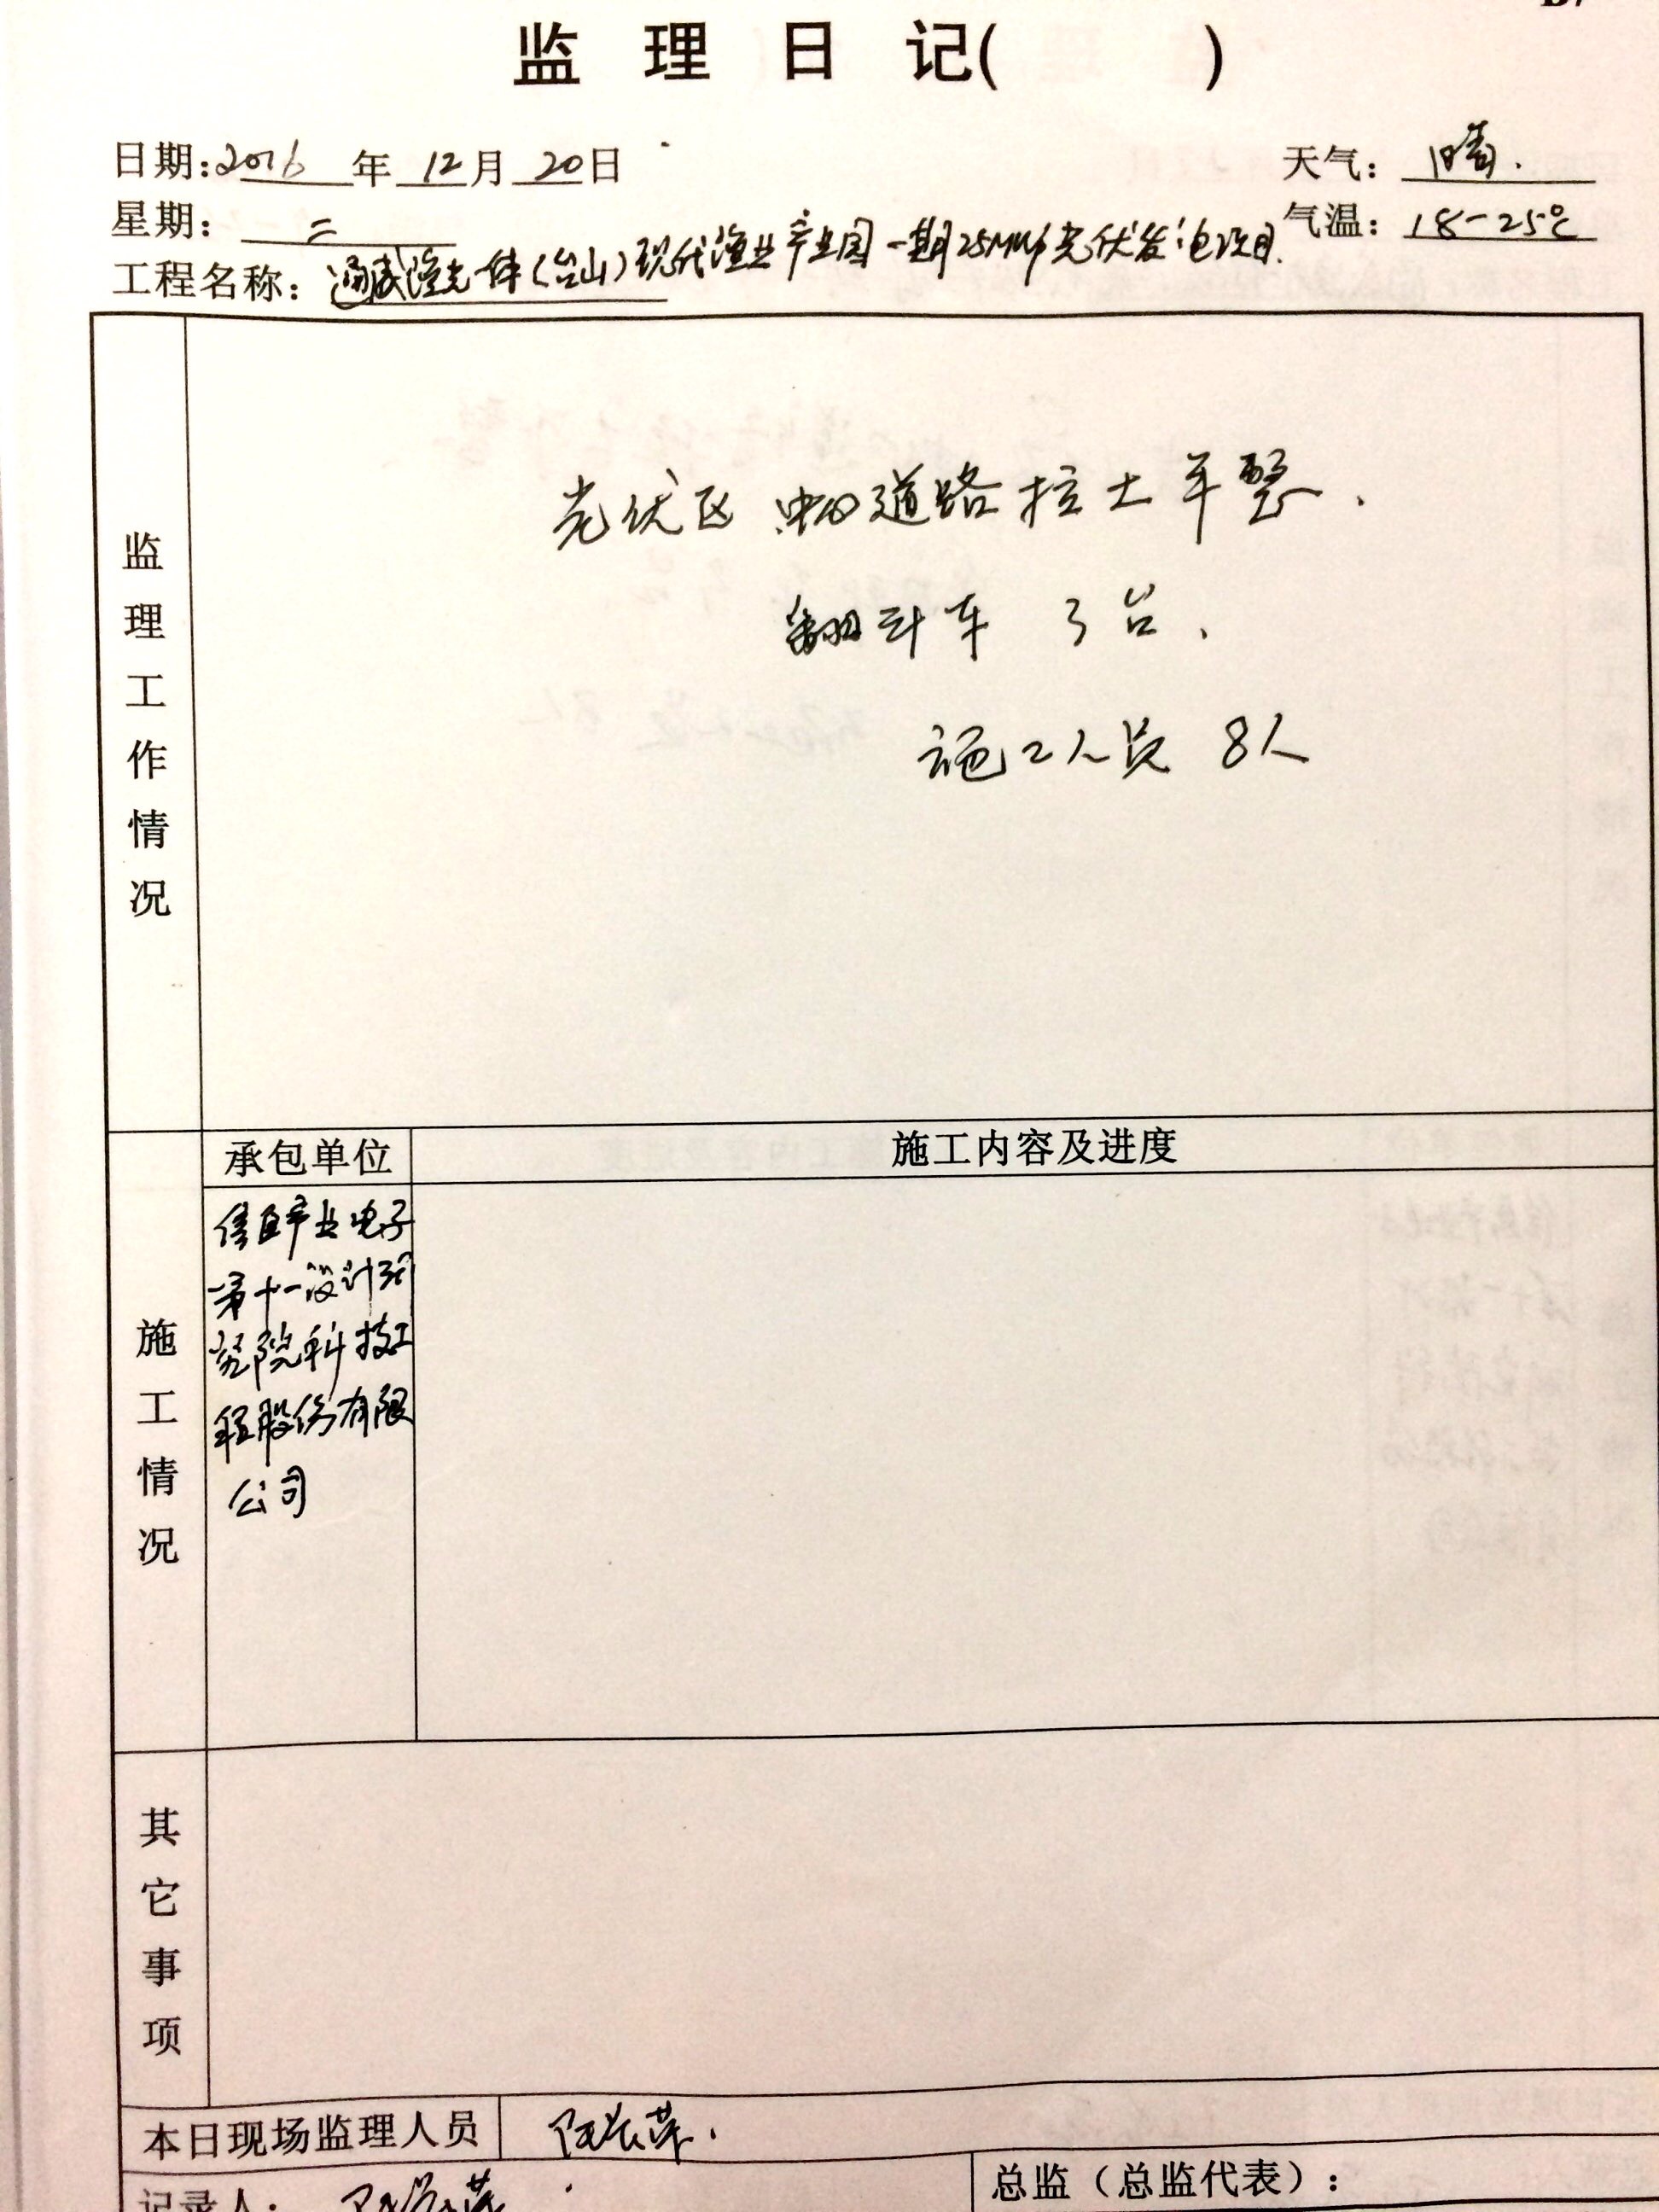 监理日记( )
日期:2016年12月20日
天气：晴.
星期：二
气温：18-25℃
工程名称：通威渔光一体(台山)现代渔业产业园一期25MWp光伏发电项目.
监理工作情况
光伏区 道路拉土平整.
翻斗车 3台.
施工人员 8人
承包单位
施工内容及进度
施工情况
信息产业电子
第十一设计研
究院科技工
程股份有限
公司
其它事项
本日现场监理人员
记录人：
总监（总监代表）：